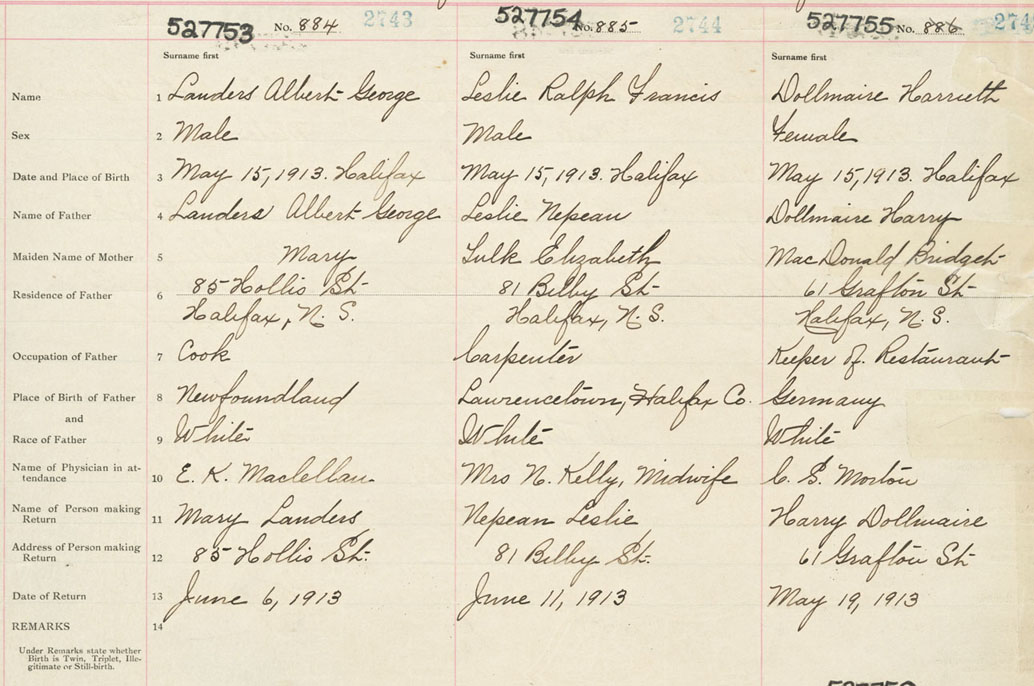 527753 No. 884 2743 527754 No. 885 2744 527755 No. 886 274
Surname first Surname first Surname first
Name 1 Landers Albert George Leslie Ralph Francis Dollmaire Harrieth
Sex 2 Male Male Female
Date and Place of Birth 3 May 15, 1913. Halifax May 15, 1913. Halifax May 15, 1913. Halifax
Name of Father 4 Landers Albert George Leslie Nepean Dollmaire Harry
Maiden Name of Mother 5 Mary Elizabeth MacDonald Bridget
Residence of Father 6 85 Hollis St. 81 Bilby St. 61 Grafton St.
Halifax, N. S. Halifax, N. S. Halifax, N. S.
Occupation of Father 7 Cook Carpenter Keeper of Restaurant
Place of Birth of Father 8 Newfoundland Lawrencetown, Halifax Co. Germany
and
Race of Father 9 White White White
Name of Physician in at-
tendance 10 E. K. Maclellan Mrs N. Kelly, Midwife C. S. Morton
Name of Person making
Return 11 Mary Landers Nepean Leslie Harry Dollmaire
Address of Person making
Return 12 85 Hollis St. 81 Bilby St. 61 Grafton St
Date of Return 13 June 6, 1913 June 11, 1913 May 19, 1913
REMARKS 14
Under Remarks state whether
Birth is Twin, Triplet, Ille-
gitimate or Still-birth.